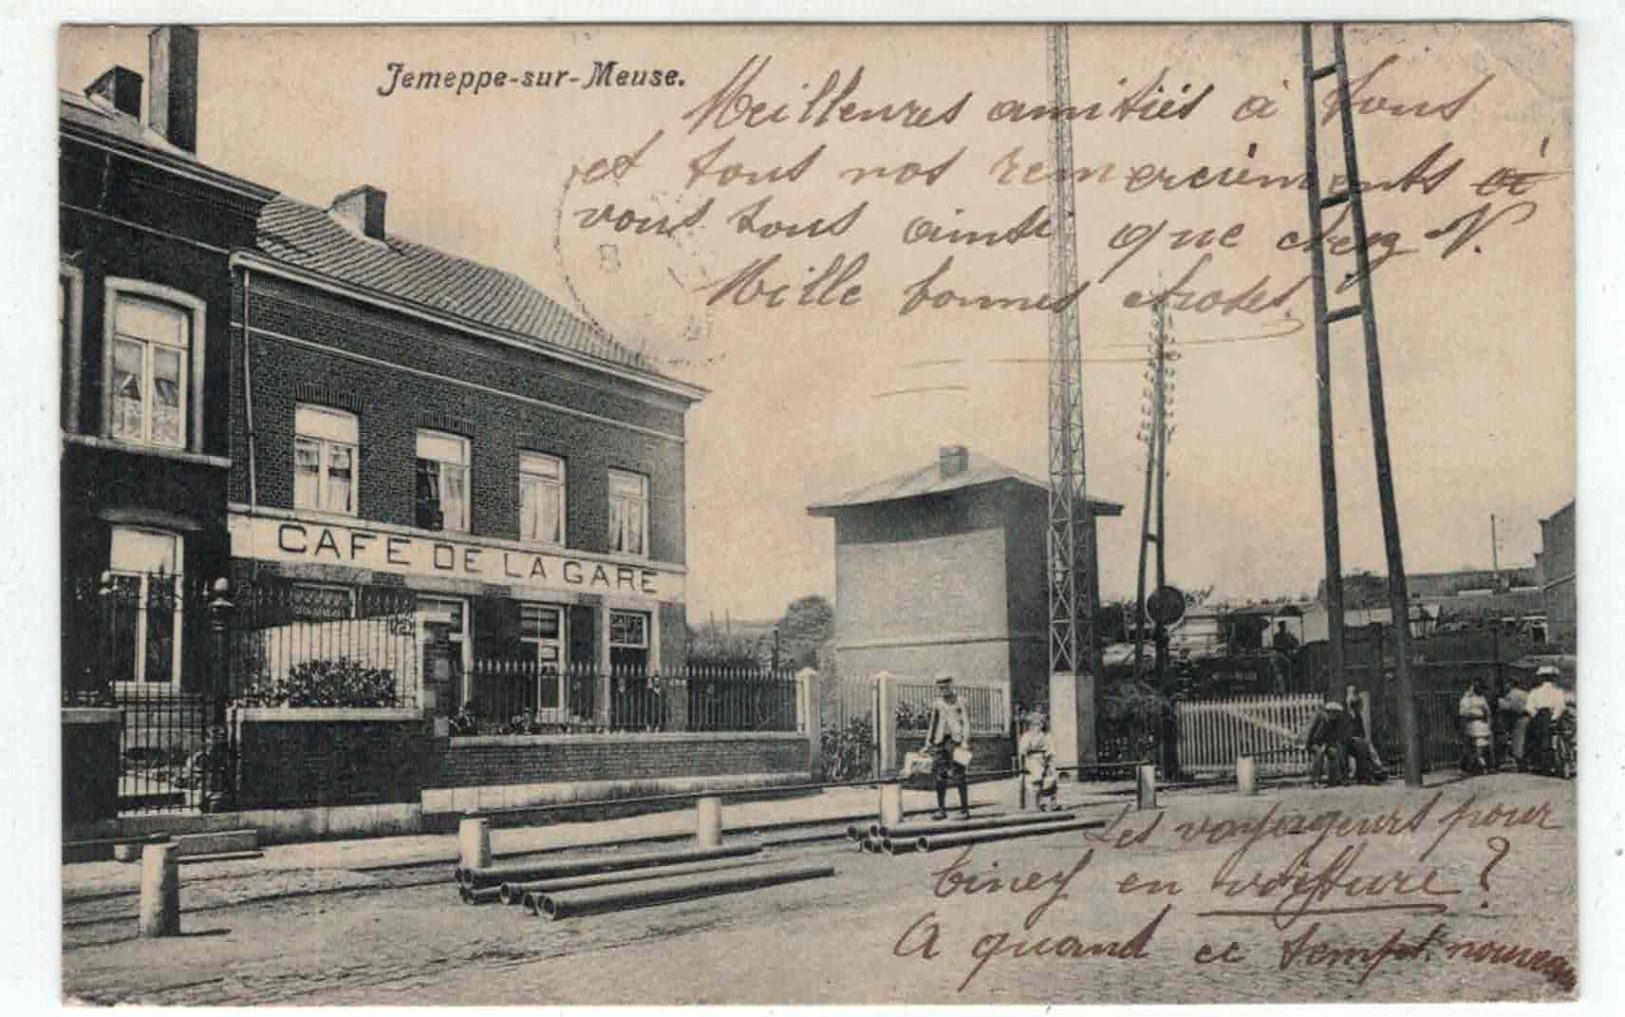 Jemeppe-sur-Meuse.
Meilleures amitiés à tous
et tous nos remerciements à
vous tous ainsi que chez N.
Mille bonnes choses.
CAFE DE LA GARE
CAFE
Les voyageurs pour
Ciney en voiture ?
A quand ce temps nouveau